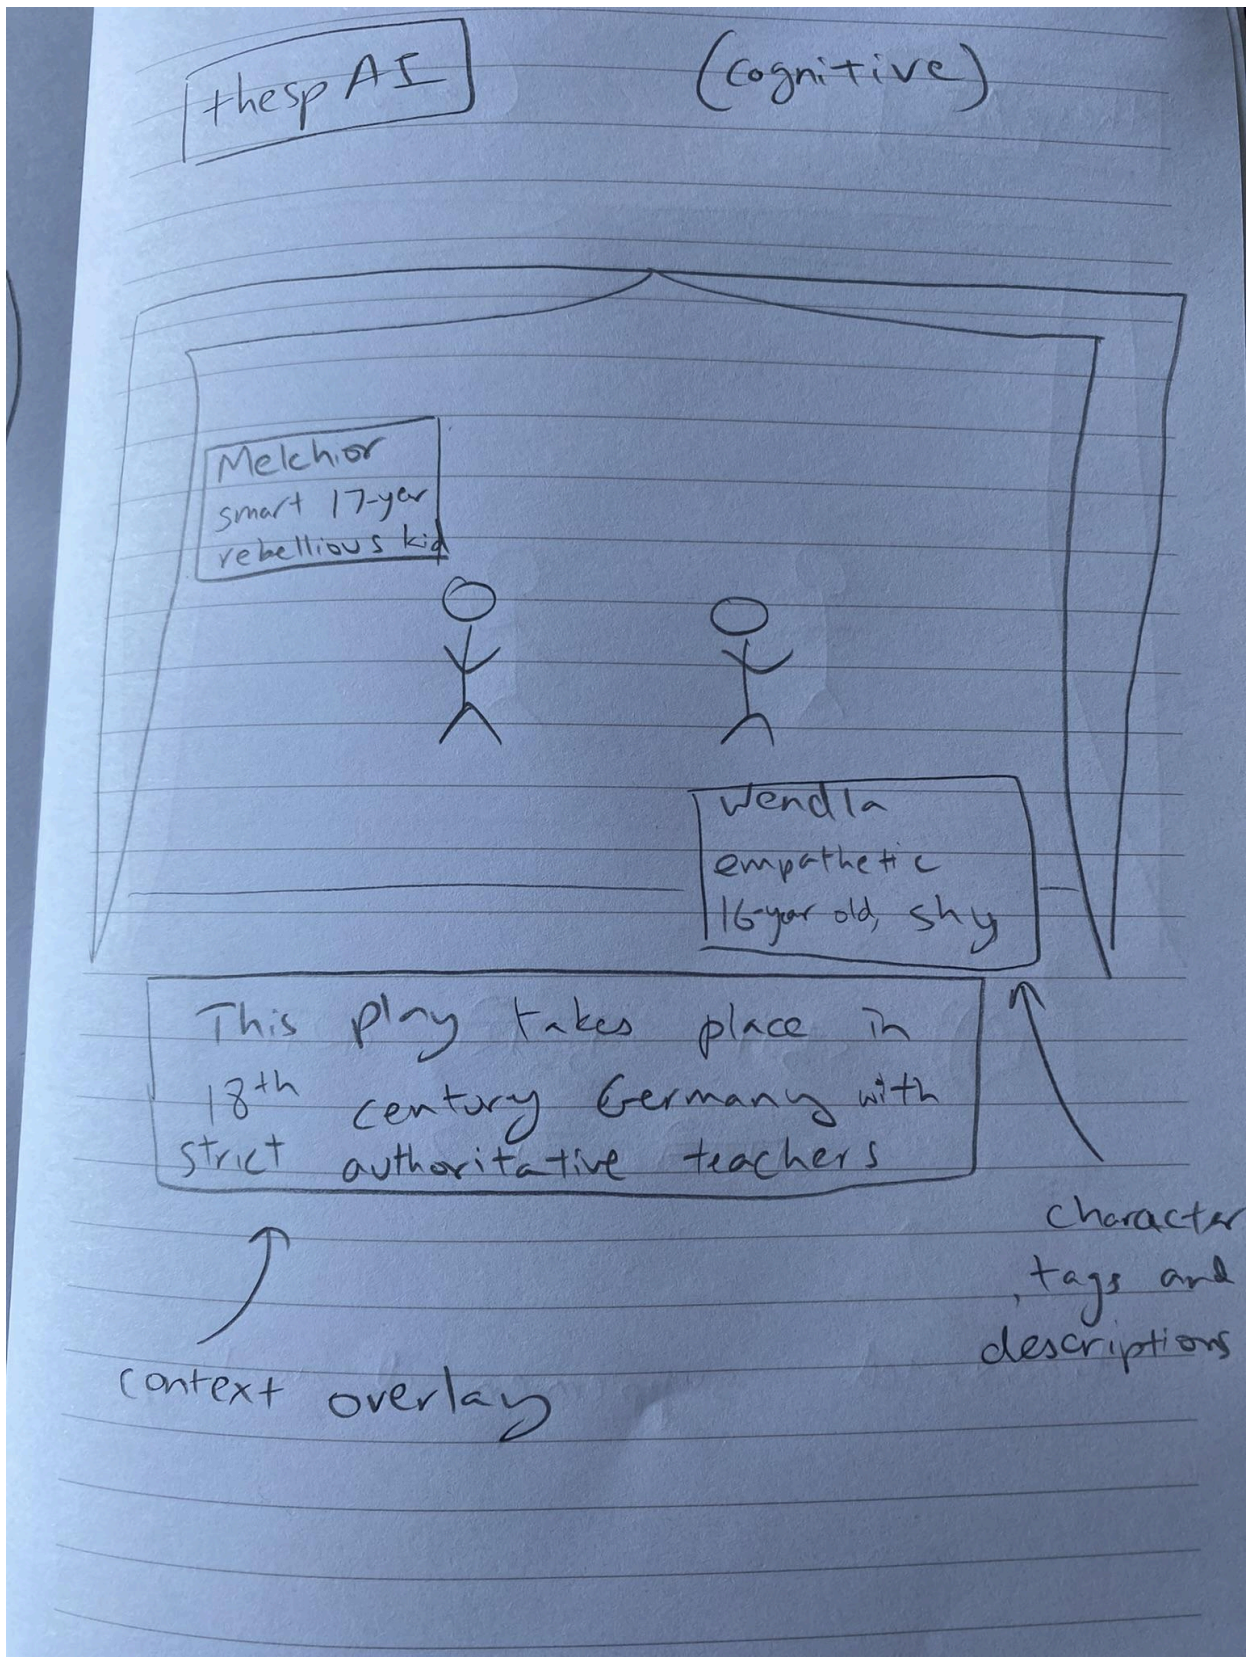 thespAI
(cognitive)
Melchior
smart 17-year
rebellious kid
Wendla
empathetic
16-year old, shy
This play takes place in
18th century Germany with
strict authoritative teachers
character
tags and
descriptions
context overlay